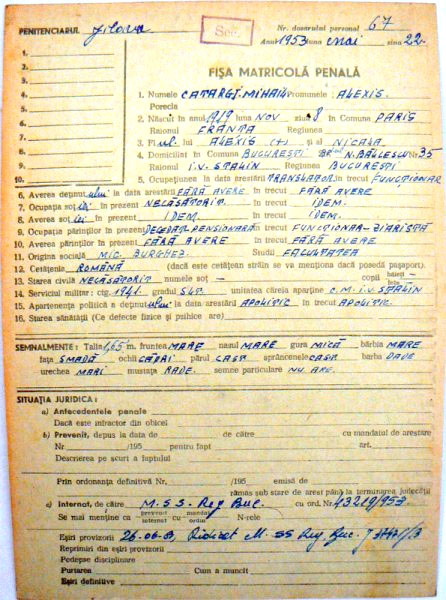 PENITENCIARUL Jilava
Sec.
Nr. dosarului personal 67
Anul 1953 luna Mai ziua 22
1.
2.
3.
4.
5.
6.
7.
8.
9.
10.
FIŞA MATRICOLĂ PENALĂ
1. Numele CATARGI. MIHAIL Pronumele: ALEXIS.
Porecla
2. Născut în anul 1919 luna NOV ziua 8 în Comuna PARIS
Raionul FRANTA Regiunea
3. Fiul lui ALEXIS (+) şi al NICALA
4. Domiciliat în Comuna BUCURESTI N. BĂLCESCU Nr 35
Raionul I.V. STALIN Regiunea BUCURESTI
5. Ocupaţiunea în data arestării TRANSLATOR în trecut FUNCŢIONAR
6. Averea deţinutului în data arestării FĂRĂ AVERE în trecut FĂRĂ AVERE
7. Ocupaţia soţiei în prezent NECĂSĂTORIT în trecut IDEM.
8. Averea soţiei în prezent IDEM în trecut IDEM.
9. Ocupaţia părinţilor în prezent DECEDAT-PENSIONARĂ în trecut FUNCŢIONAR-ZIARISTĂ
10. Averea părinţilor în prezent FĂRĂ AVERE în trecut FĂRĂ AVERE
11. Originea socială MIC. BURGHEZ. Studii FACULTATEA
12. Cetăţenia ROMÂNĂ (dacă este cetăţean străin se va menţiona dacă posedă paşaport).
13. Starea civilă NECĂSĂTORIT numele soţ - copii
14. Serviciul militar: ctg. 1941. gradul unitatea căreia aparţine C.M. I.V. STALIN
15. Apartenenţa politică a deţinutului la data arestării APOLITIC în trecut APOLITIC.
16. Starea sănătăţii (Ce defecte fizice şi psihice are)
SEMNALMENTE: Talia 1,65 m. fruntea MARE nasul MARE gura MICĂ bărbia MARE
faţa SMADĂ ochii CĂPRUI părul CAST sprâncenele CAST barba
urechea MARI mustaţa RADE. semne particulare NU ARE.
SITUAŢIA JURIDICA:
a) Antecedentele penale
Dacă este infractor din obicei
b) Prevenit, depus la data de de către cu mandatul de arestare
Nr /195 pentru fapt art.
Descrierea pe scurt a faptului
Prin ordonanţa definitivă Nr. /195 emisă de
rămas sub stare de arest până la terminarea judecăţii
c) Internat, de către M.S.S. Reg. Buc. cu ord. Nr. 43219/953.
Se mai menţine ca prevenit internat cu mandat ordin N-rele
Eşiri provizorii 26-06-53, Ridicat M.SS Reg. Buc.
Reprimiri din eşiri provizorii
Pedepse disciplinare
Purtarea Cum a muncit
Eşiri definitive